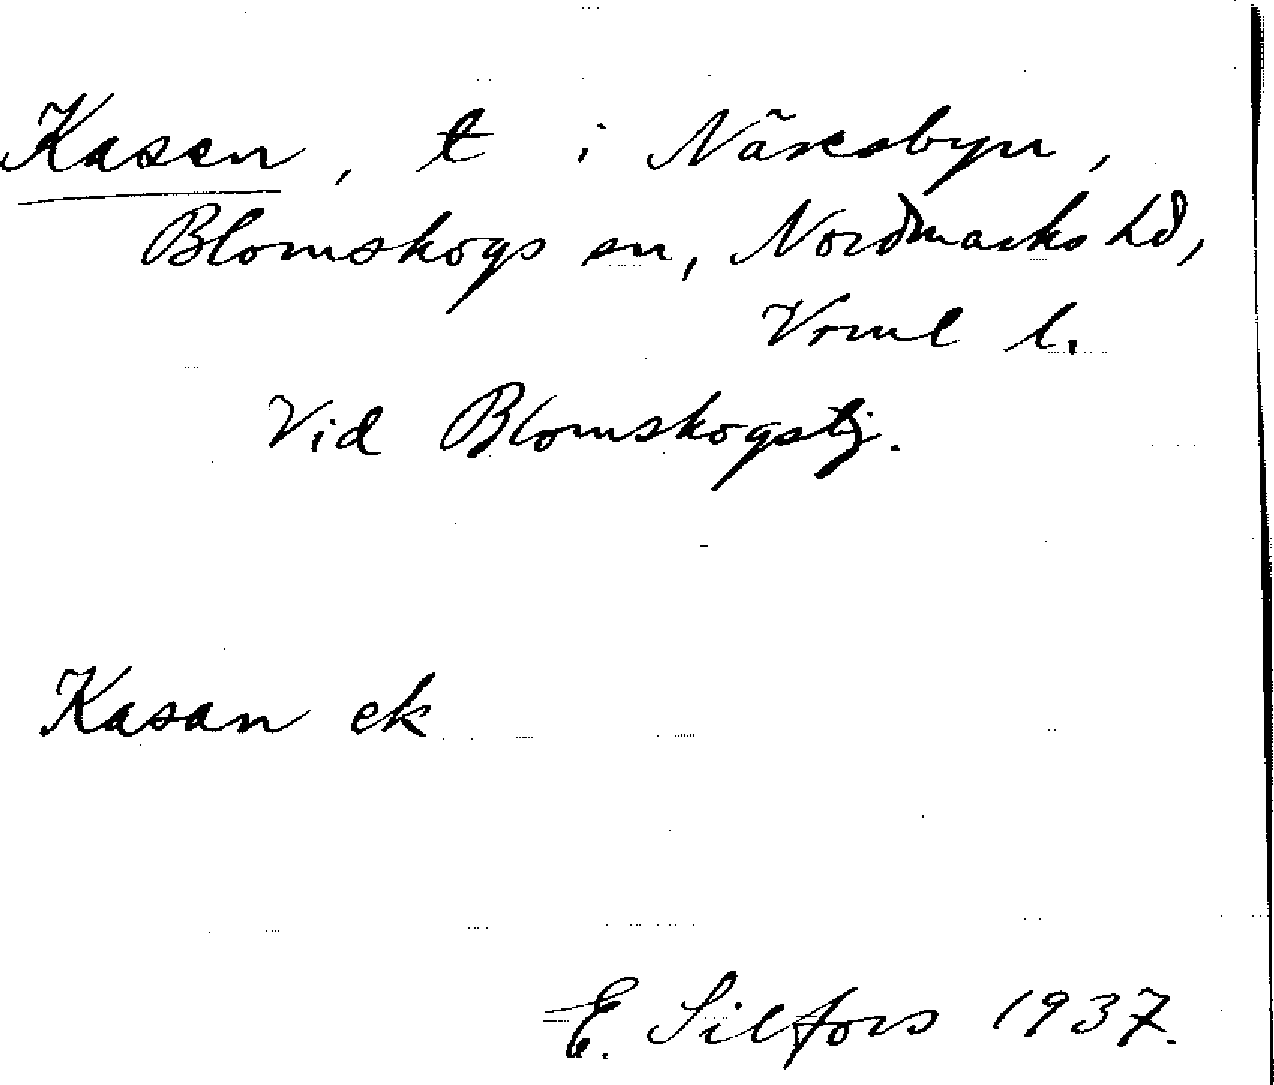 Kasen, t i Näresbyn,
Blomskogs sn, Nordmarks hd,
Vrml l.
Vid Blomskogstj.
Kasan ek
E. Silfors 1937.